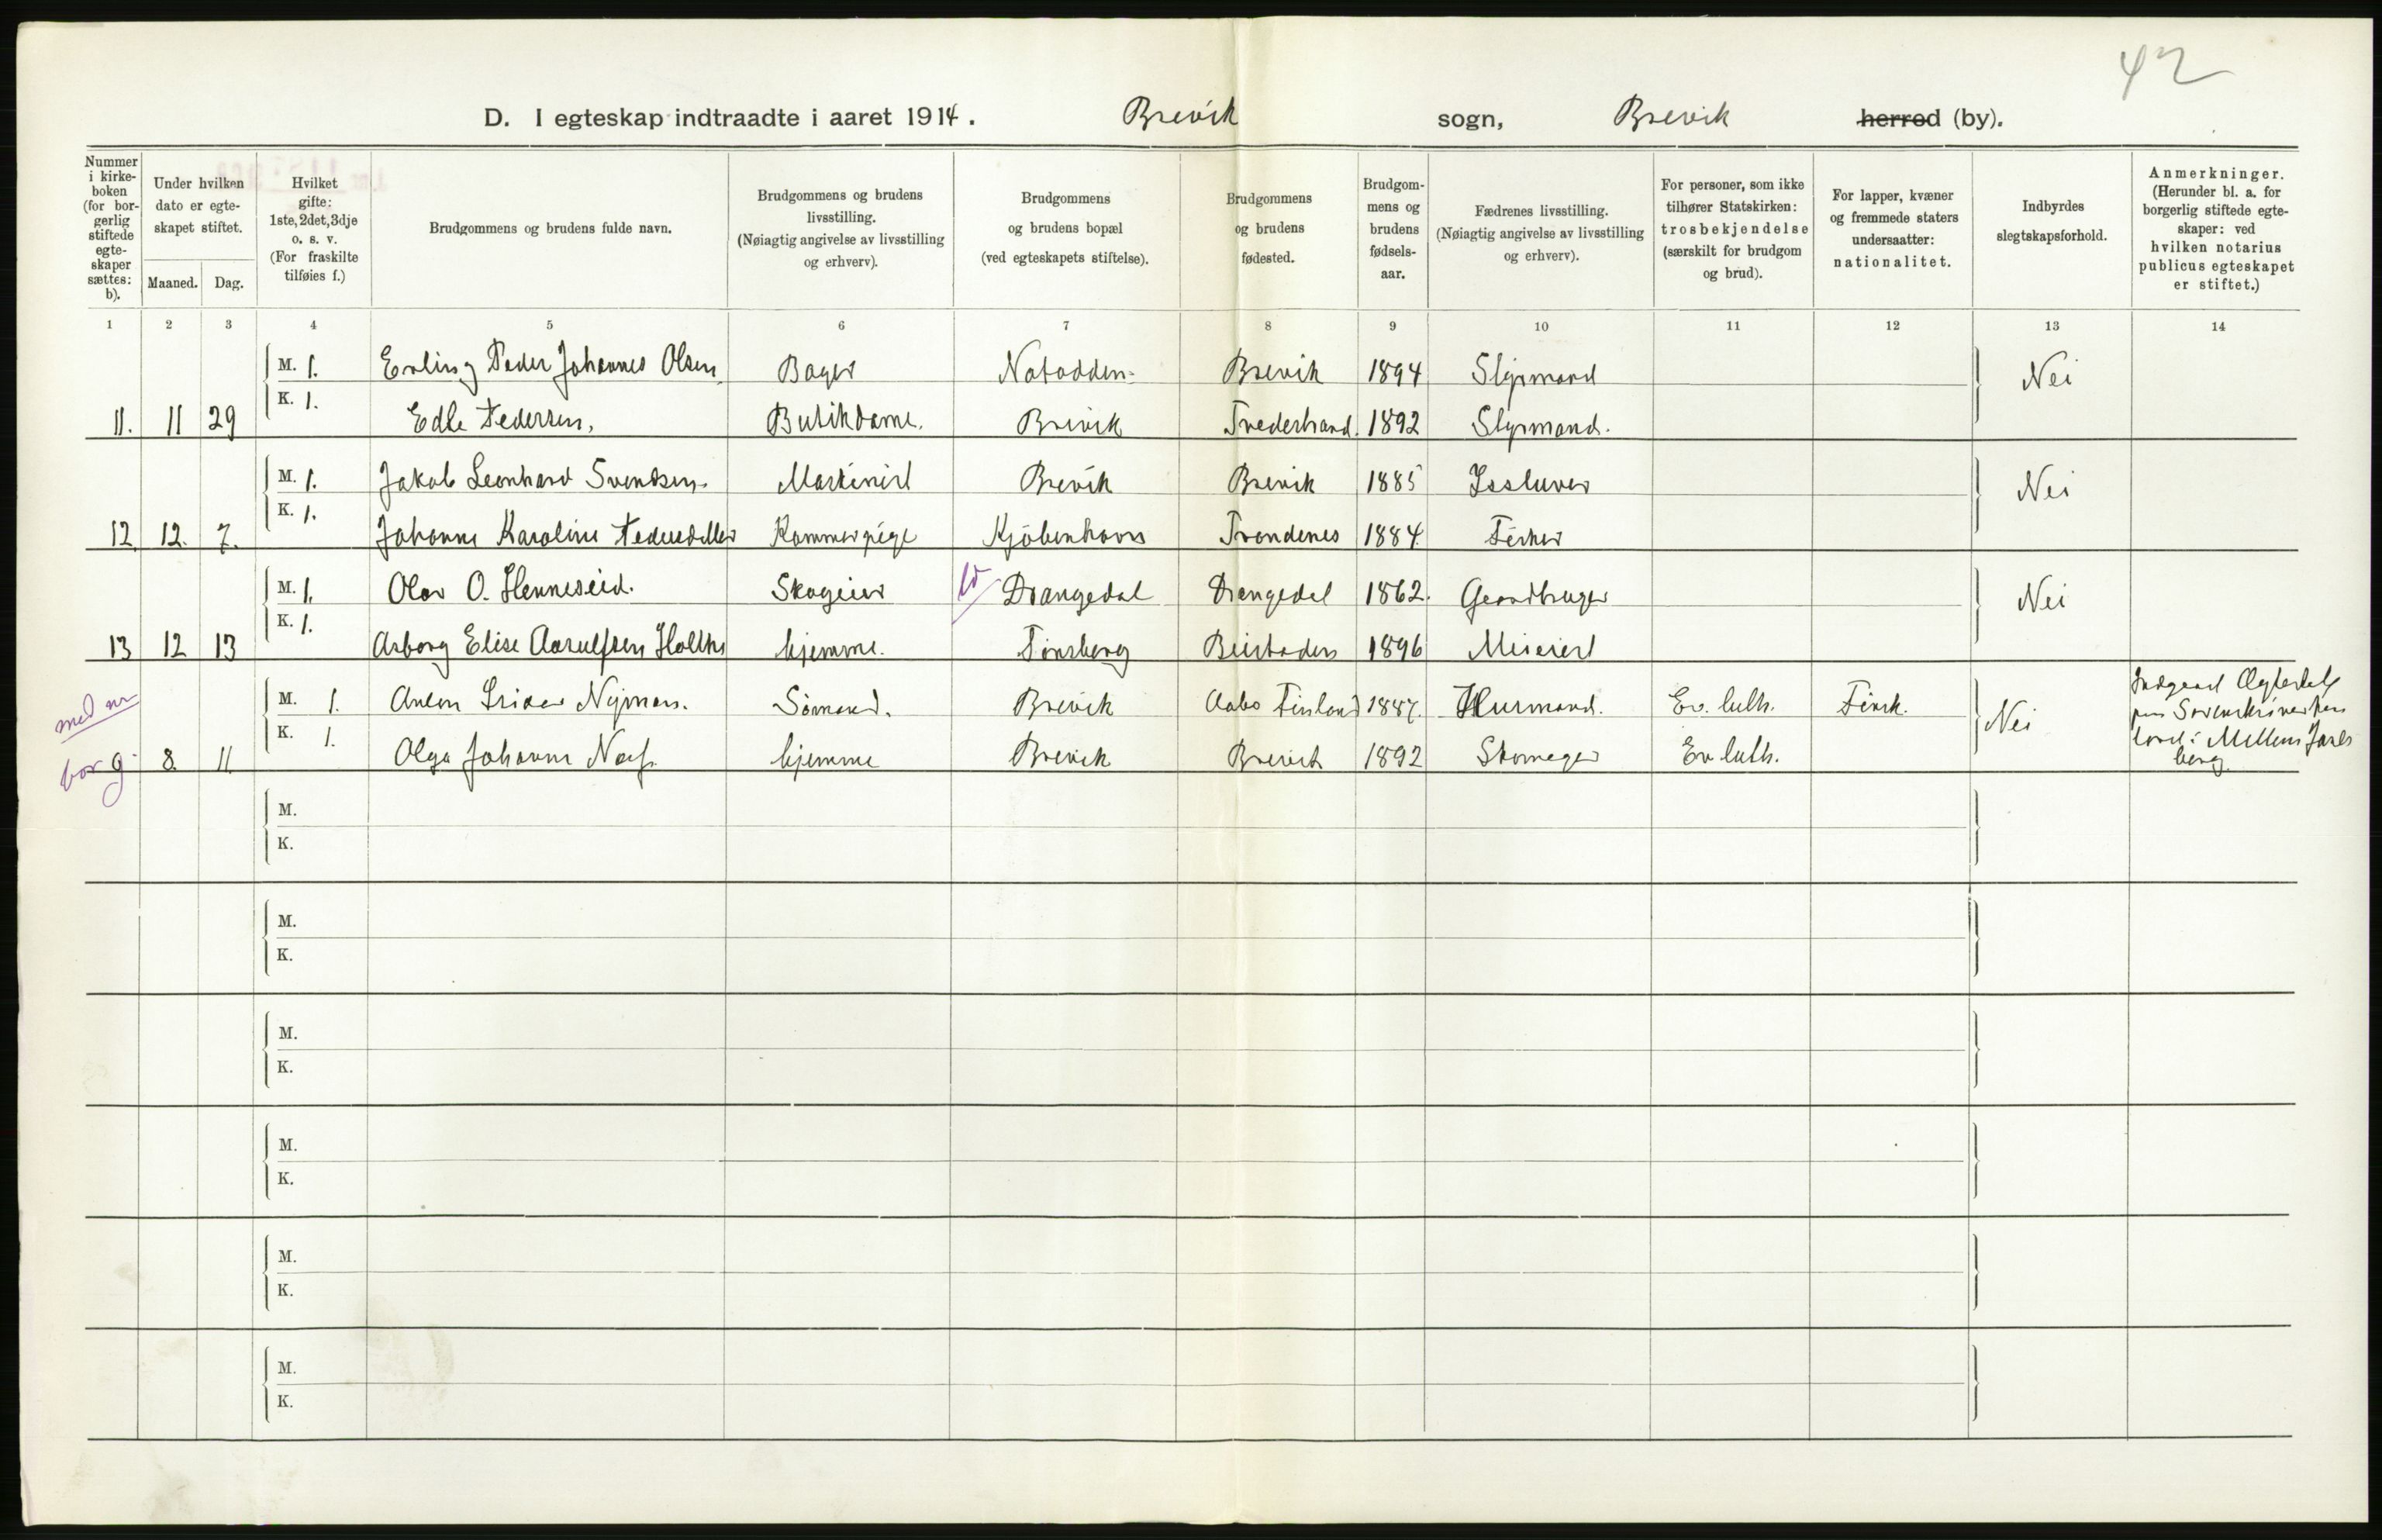 42
D. I egteskap indtraadte i aaret 1914. Brevik sogn, Brevik herred (by).
Nummer i kirkeboken (for borgerlig stiftede egteskaper sættes: b).
Under hvilken dato er egteskapet stiftet.
Maaned. Dag.
Hvilket gifte: 1ste, 2det, 3dje o. s. v. (For fraskilte tilføies f.)
Brudgommens og brudens fulde navn.
Brudgommens og brudens livsstilling. (Nøiagtig angivelse av livsstilling og erhverv).
Brudgommens og brudens bopæl (ved egteskapets stiftelse).
Brudgommens og brudens fødested.
Brudgommens og brudens fødselsaar.
Fædrenes livsstilling. (Nøiagtig angivelse av livsstilling og erhverv).
For personer, som ikke tilhører Statskirken: trosbekjendelse (særskilt for brudgom og brud).
For lapper, kvæner og fremmede staters undersaatter: nationalitet.
Indbyrdes slegtskapsforhold.
Anmerkninger. (Herunder bl. a. for borgerlig stiftede egteskaper: ved hvilken notarius publicus egteskapet er stiftet.)
1 2 3 4 5 6 7 8 9 10 11 12 13 14
M. 1. Erling Peder Johannes Olsen Bager Notodden Brevik 1894 Styrmand Nei
11. 11 29 K. 1. Edle Pedersen, Butikdame. Brevik Tvedestrand. 1892 Styrmand.
M. 1. Jakob Leonhard Svendsen Maskinist Brevik Brevik 1885 Nei
12. 12. 7. K. 1. Johanne Karoline Kammerpige Kjöbenhavn Trondenes 1884 Fisker
M. 1. Olav O. Henneseid. Skogeier Drangedal Drangedal 1862. Gaardbruger Nei
13 12 13 K. 1. Asborg Elise Aasulfsen Holthe hjemme. Tönsberg Beistaden 1896 Meierist
med nr
M. 1. Anton Nyman. Sömand. Brevik Aabo Finland 1887. Husmand. Ev. luth. Finsk. Nei
9 8. 11 K. 1. Olga Johanne Næs. hjemme Brevik Brevik 1892 Skomager Ev. luth.
Mellem Jarls
berg
M.
K.
M.
K.
M.
K.
M.
K.
M.
K.
M.
K.